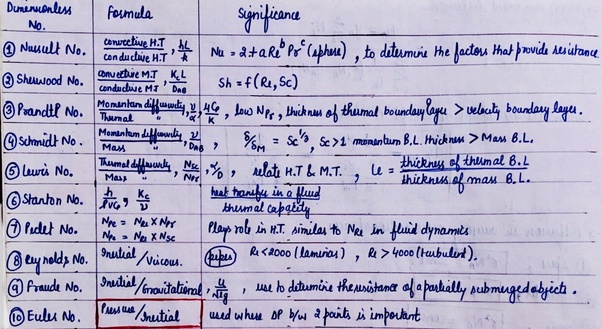 Dimensionless No. Formula Significance
① Nusselt No. convective H.T / conductive H.T , hL/k Nu = 2 + a Re^b Pr^c (sphere) , to determine the factors that provide resistance
② Sherwood No. convective M.T / conductive M.T , KcL/DAB Sh = f (Re, Sc)
③ Prandtl No. Momentum diffusivity / Thermal " , ν/α , μCp/K , low NPr, thickness of thermal boundary layer > velocity boundary layer.
④ Schmidt No. Momentum diffusivity / Mass " , ν/DAB , δ/δM = Sc^1/3, Sc>1 momentum B.L. thickness > Mass B.L.
⑤ Lewis No. Thermal diffusivity / Mass " , NSc/NPr , α/D , relate H.T & M.T. , Le = thickness of thermal B.L / thickness of mass B.L.
⑥ Stanton No. h/ρVCp , Kc/v heat transfer in a fluid / thermal capacity
⑦ Peclet No. NPe = NRe × NPr Plays role in H.T. similar to NRe in fluid dynamics
NPe = NRe × NSc
⑧ Reynolds No. Inertial / Viscous. pipes Re < 2000 (laminar) , Re > 4000 (turbulent).
⑨ Fraude No. Inertial / Gravitational , u/√Lg , use to determine the resistance of a partially submerged objects.
⑩ Euler No. Pressure / Inertial used where DP b/w 2 points is important